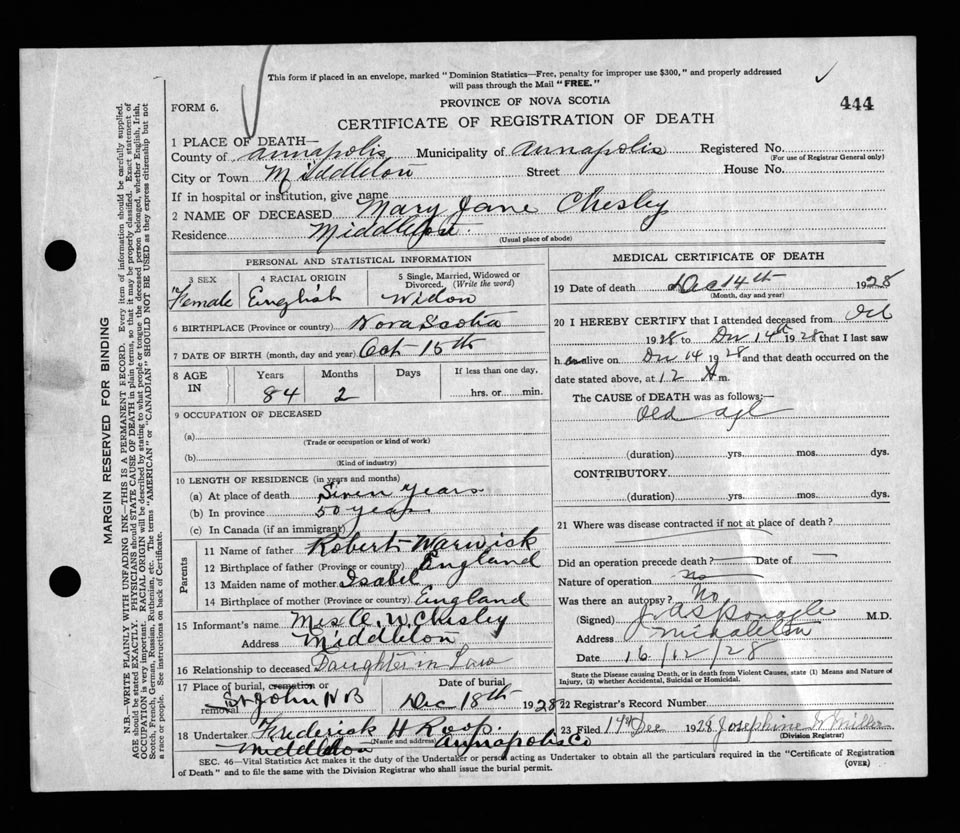 This form if placed in an envelope, marked "Dominion Statistics—Free, penalty for improper use $300," and properly addressed
will pass through the Mail "FREE."
FORM 6.
PROVINCE OF NOVA SCOTIA
444
CERTIFICATE OF REGISTRATION OF DEATH
1 PLACE OF DEATH—
County of Annapolis Municipality of Annapolis Registered No.
(For use of Registrar General only)
City or Town Middleton Street House No.
If in hospital or institution, give name
2 NAME OF DECEASED Mary Jane Chesley
Residence Middleton.
(Usual place of abode)
PERSONAL AND STATISTICAL INFORMATION
3 SEX 4 RACIAL ORIGIN 5 Single, Married, Widowed or
Divorced. (Write the word)
Female English Widow
6 BIRTHPLACE (Province or country) Nova Scotia
7 DATE OF BIRTH (month, day and year) Oct 15th
8 AGE IN Years Months Days If less than one day,
84 2 hrs. or min.
9 OCCUPATION OF DECEASED
(a)
(Trade or occupation or kind of work)
(b)
(Kind of industry)
10 LENGTH OF RESIDENCE (in years and months)
(a) At place of death Seven Years
(b) In province 50 years
(c) In Canada (if an immigrant)
Parents
11 Name of father Robert Warwick
12 Birthplace of father (Province or country) England
13 Maiden name of mother Isabel
14 Birthplace of mother (Province or country) England
15 Informant's name Mrs A. W. Chesley
Address Middleton
16 Relationship to deceased Daughter in Law
17 Place of burial, cremation or Date of burial
removal St John N B Dec 18th 1928
18 Undertaker Frederick H Roop.
Name and address
Middleton Annapolis Co
MEDICAL CERTIFICATE OF DEATH
19 Date of death Dec 14th 1928
(Month, day and year)
20 I HEREBY CERTIFY that I attended deceased from Oct
1928 to Dec 14th 1928 that I last saw
h er alive on Dec 14 1928 and that death occurred on the
date stated above, at 12 A m.
The CAUSE of DEATH was as follows:—
Old age
(duration) yrs. mos. dys.
CONTRIBUTORY
(duration) yrs. mos. dys.
21 Where was disease contracted if not at place of death?
Did an operation precede death? Date of
Nature of operation no
Was there an autopsy? No
(Signed) M.D.
Address Middleton
Date 16/12/28
State the Disease causing Death, or in Death from Violent Causes, state (1) Means and Nature of
Injury, (2) whether Accidental, Suicidal or Homicidal.
22 Registrar's Record Number
23 Filed Dec 1928 Josephine Miller
(Division Registrar)
SEC. 46—Vital Statistics Act makes it the duty of the Undertaker or person acting as Undertaker to obtain all the particulars required in the "Certificate of Registration
of Death" and to file the same with the Division Registrar who shall issue the burial permit.
(OVER)
MARGIN RESERVED FOR BINDING
N.B.—WRITE PLAINLY WITH UNFADING INK—THIS IS A PERMANENT RECORD. Every item of information should be carefully supplied.
AGE should be stated EXACTLY. PHYSICIANS should STATE CAUSE OF DEATH in plain terms, so that it may be properly classified. Exact statement of
OCCUPATION is very important. RACIAL ORIGIN will be described by stating to what people or tongue the deceased person belonged, whether English, Irish,
Scotch, French, German, Russian, Ruthenian, etc. The terms "AMERICAN" or "CANADIAN" SHOULD NOT BE USED as they express citizenship but not
a race or people. See instructions on back of Certificate.